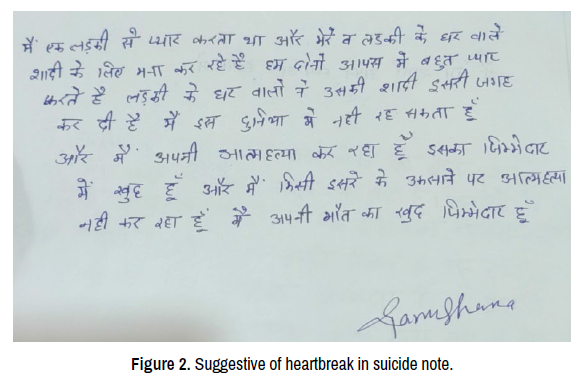 मैं एक लड़की से प्यार करता था और मेरे व लड़की के घर वाले
शादी के लिए मना कर रहे है हम दोनो आपस मे बहुत प्यार
करते है लड़की के घर वालो ने उसकी शादी दुसरी जगह
कर दी है मै इस दुनिया मे नही रह सकता हूँ
और मैं अपनी आत्महत्या कर रहा हूँ इसका जिम्मेदार
में खुद हूँ और मैं किसी दुसरे के उकसाने पर आत्महत्या
नही कर रहा हूँ मैं अपनी मौत का खुद जिम्मेदार हूँ
Figure 2. Suggestive of heartbreak in suicide note.